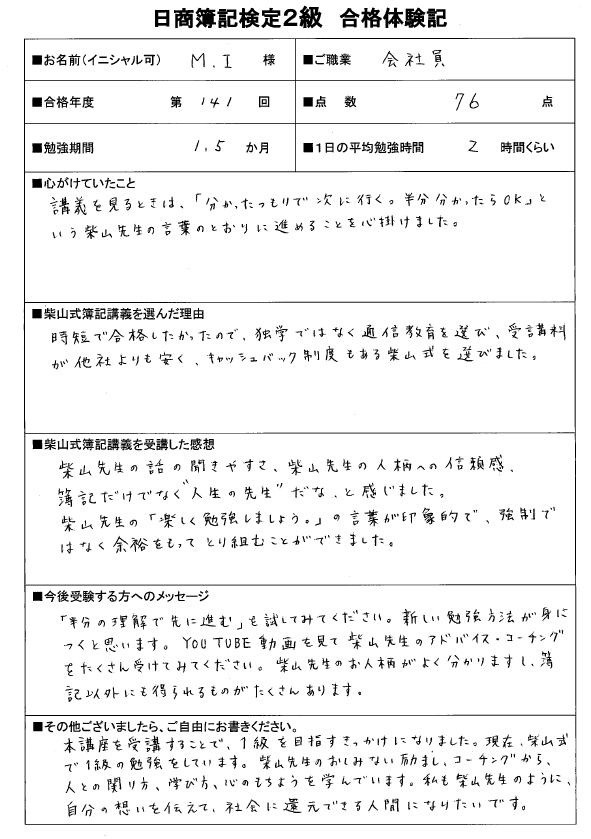 日商簿記検定2級 合格体験記
■お名前(イニシャル可) M.I 様 ■ご職業 会社員
■合格年度 第 141 回 ■点 数 76 点
■勉強期間 1.5 か月 ■1日の平均勉強時間 2 時間くらい
■心がけていたこと
講義を見るときは、「分かったつもりで次に行く。半分分かったらOK」と
いう柴山先生の言葉のとおりに進めることを心掛けました。
■柴山式簿記講義を選んだ理由
時短で合格したかったので、独学ではなく通信教育を選び、受講料
が他社よりも安く、キャッシュバック制度もある柴山式を選びました。
■柴山式簿記講義を受講した感想
柴山先生の話の聞きやすさ、柴山先生の人柄への信頼感、
簿記だけでなく“人生の先生”だな、と感じました。
柴山先生の「楽しく勉強しましょう。」の言葉が印象的で、強制で
はなく余裕をもってとり組むことができました。
■今後受験する方へのメッセージ
「半分の理解で先に進む」を試してみてください。新しい勉強方法が身に
つくと思います。YOUTUBE動画を見て柴山先生のアドバイス・コーチング
をたくさん受けてみてください。柴山先生のお人柄がよく分かりますし、簿
記以外にも得られるものがたくさんあります。
■その他ございましたら、ご自由にお書きください。
本講座を受講することで、1級を目指すきっかけになりました。現在、柴山式
で1級の勉強をしています。柴山先生のおしみない励まし、コーチングから、
人との関り方、学び方、心のもちようを学んでいます。私も柴山先生のように、
自分の想いを伝えて、社会に還元できる人間になりたいです。